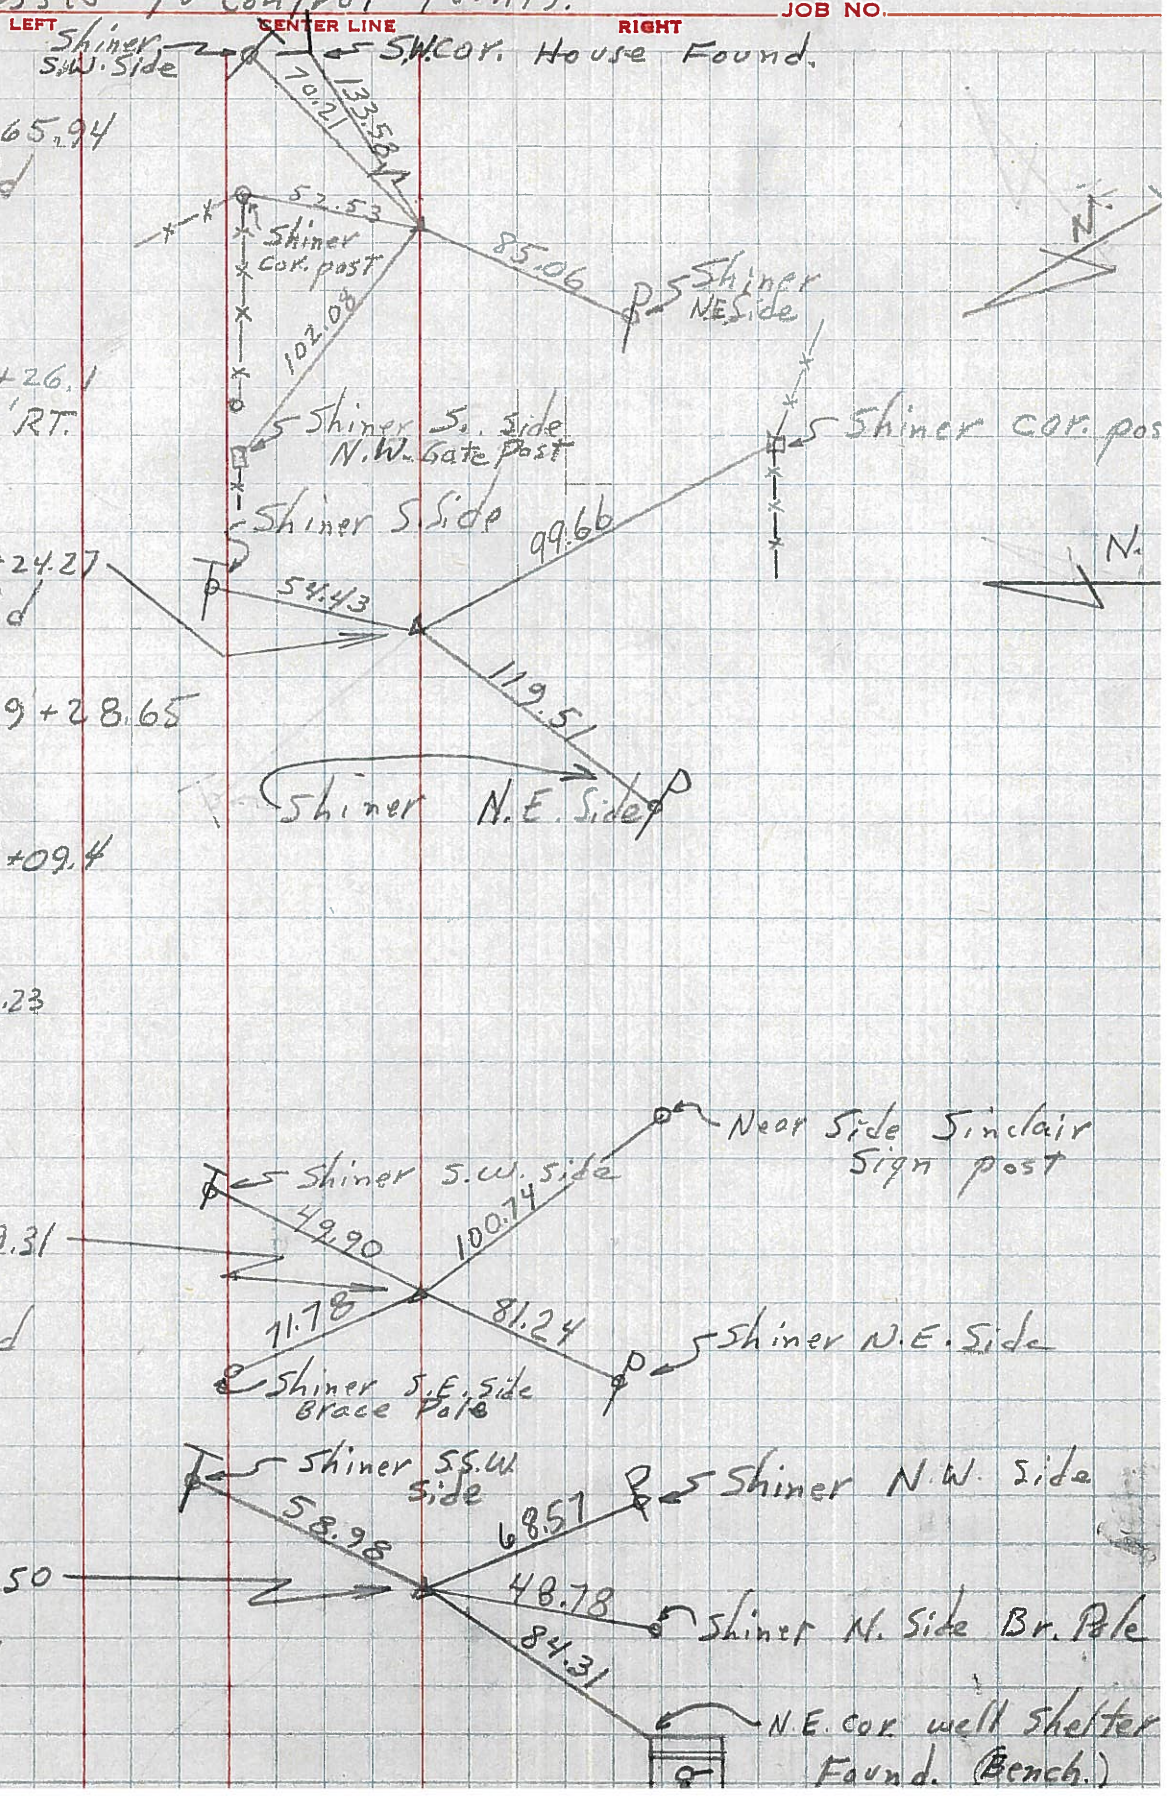 control points.
JOB NO.
LEFT
CENTER LINE
RIGHT
Shiner
S.W. Side
S.W. Cor. House Found.
70.21
133.58
65.94
52.53
Shiner
Cor. post
85.06
Shiner
N.E. Side
N.
102.08
+26.1
RT.
Shiner S. Side
N.W. Gate Post
Shiner Cor. pos
Shiner S. Side
99.66
N.
24.27
d
54.43
119.51
9+28.65
Shiner N.E. Side
+09.4
.23
Near Side Sinclair
Sign post
Shiner S.W. Side
49.90
100.74
.31
71.78
81.24
Shiner N.E. Side
d
Shiner S.E. Side
Brace Pole
Shiner S.S.W.
Side
58.98
68.57
Shiner N.W. Side
50
48.78
Shiner N. Side Br. Pole
84.31
N.E. Cor. well Shelter
Found. (Bench.)